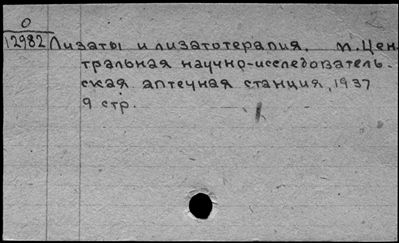 О
12982 Лизаты и лизатотерапия. М. Цен
тральная научно-исследователь-
ская аптечная станция, 1937
9 стр.